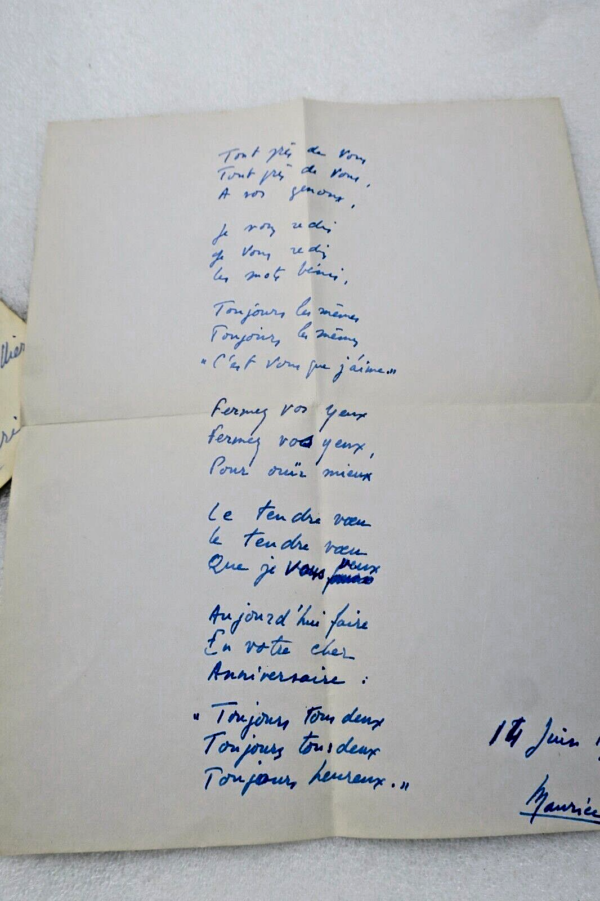 Tout près de vous
Tout près de vous,
A vos genoux,
Je vous redis
Je vous redis
les mots bénis,
Toujours les mêmes
Toujours les mêmes
"C'est vous que j'aime."
Fermez vos yeux
Fermez vos yeux,
Pour ouïr mieux
Le tendre vœu
le tendre vœu
Que je vous peux
Aujourd'hui faire
En votre cher
Anniversaire :
"Toujours tous deux
Toujours tous deux
Toujours heureux."
14 Juin
Maurice